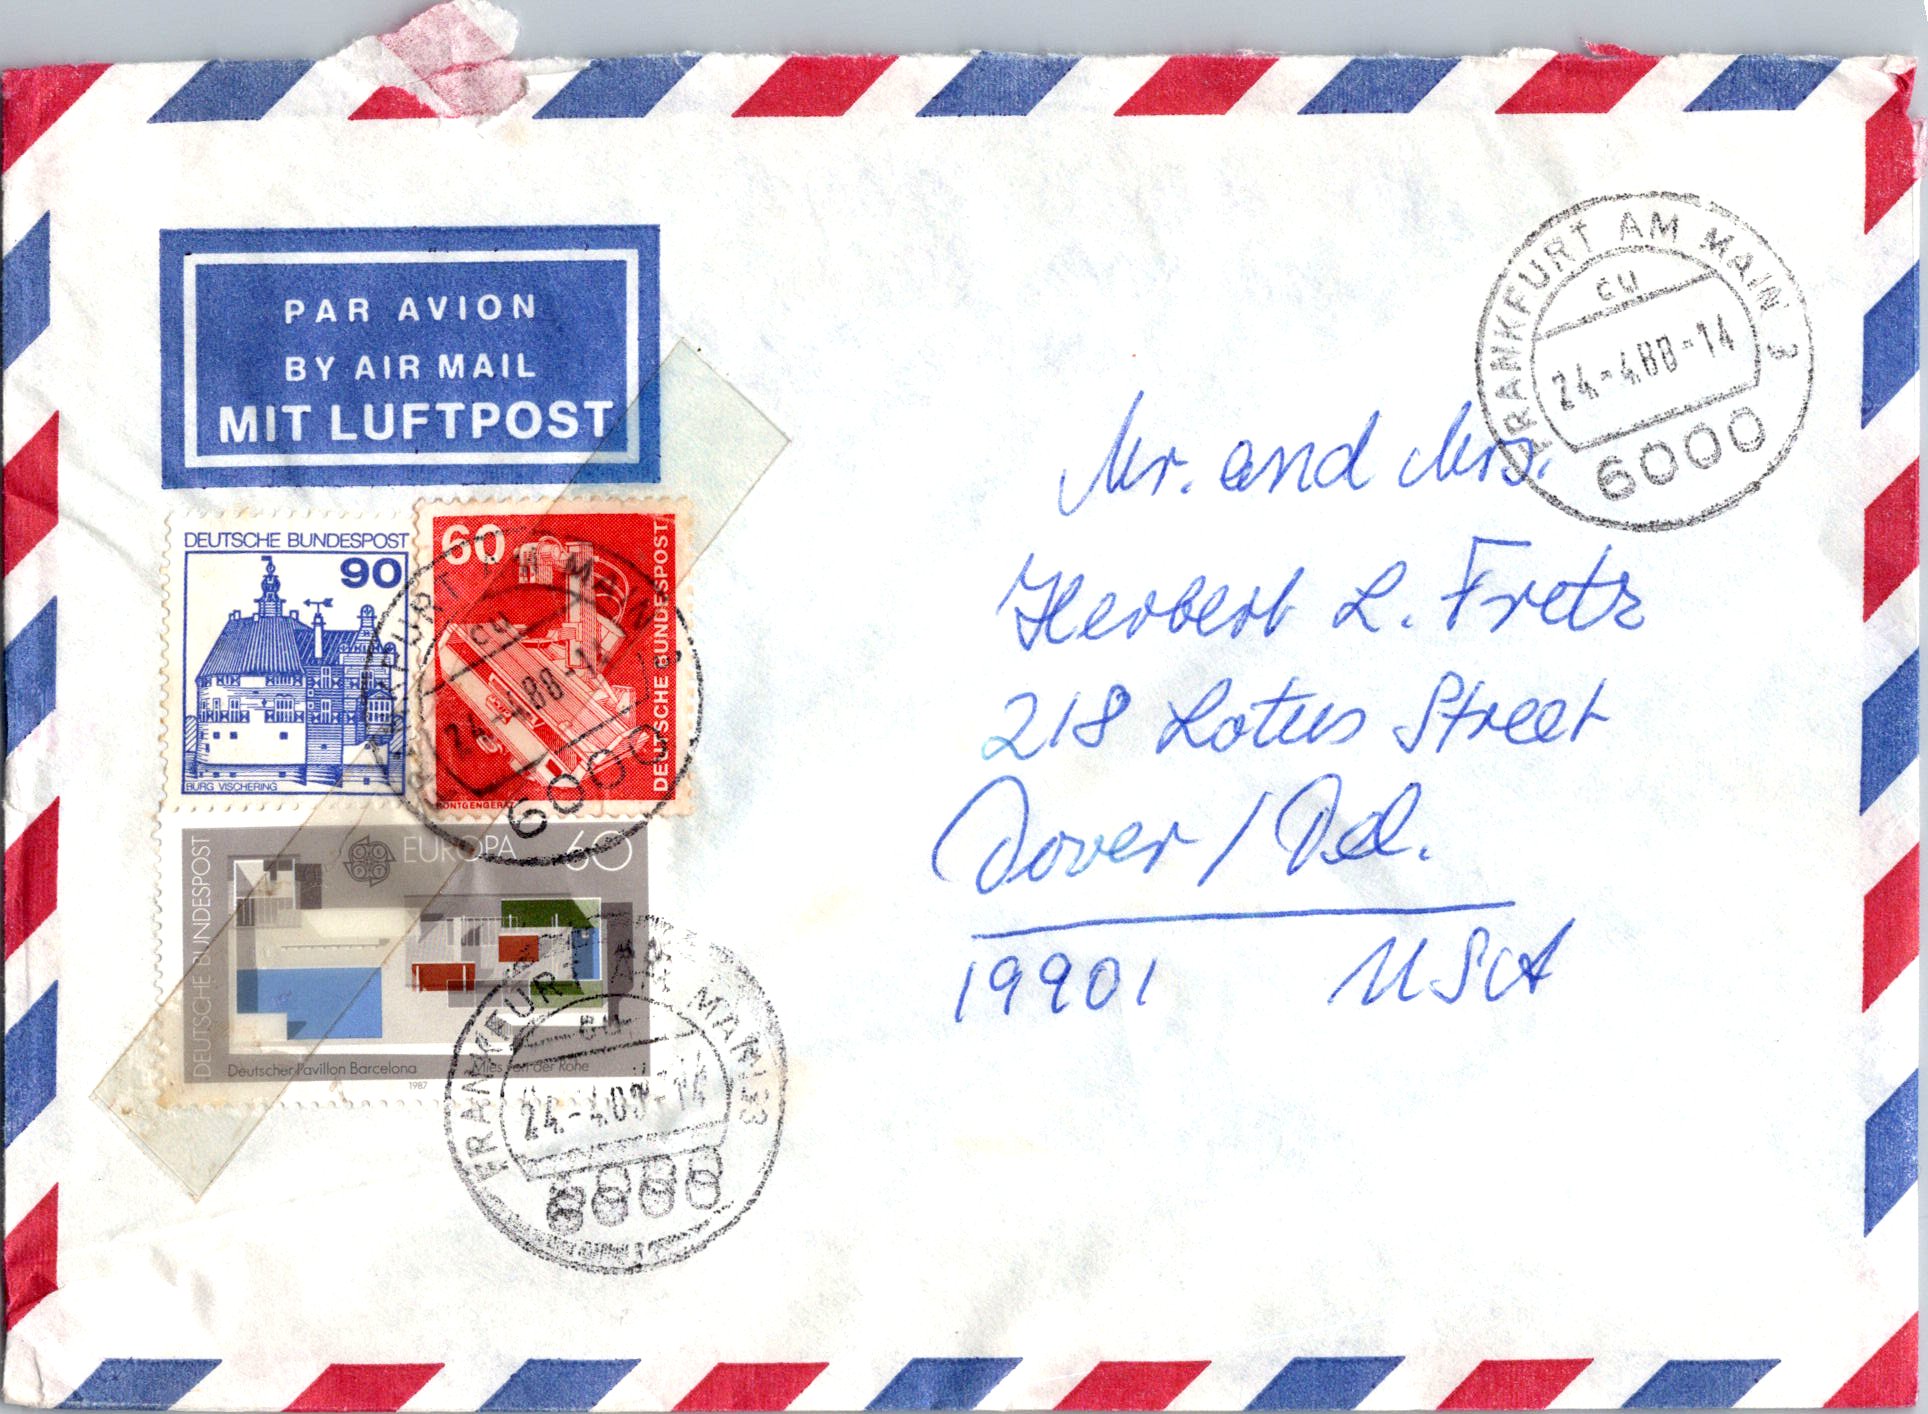 PAR AVION
BY AIR MAIL
MIT LUFTPOST
FRANKFURT AM MAIN
cu
24.-4.88-14
6000
DEUTSCHE BUNDESPOST
90
BURG VISCHERING
60
DEUTSCHE BUNDESPOST
RÖNTGENGERÄT
FRANKFURT AM MAIN
cu
24.-4.88-14
6000
DEUTSCHE BUNDESPOST
EUROPA
60
CEPT
Deutscher Pavillon Barcelona
Mies van der Rohe
1987
FRANKFURT AM MAIN
cu
24.-4.88-14
6000
Mr. and Mrs.
Herbert L. Fretz
218 Lotus Street
Dover / Del.
19901 USA